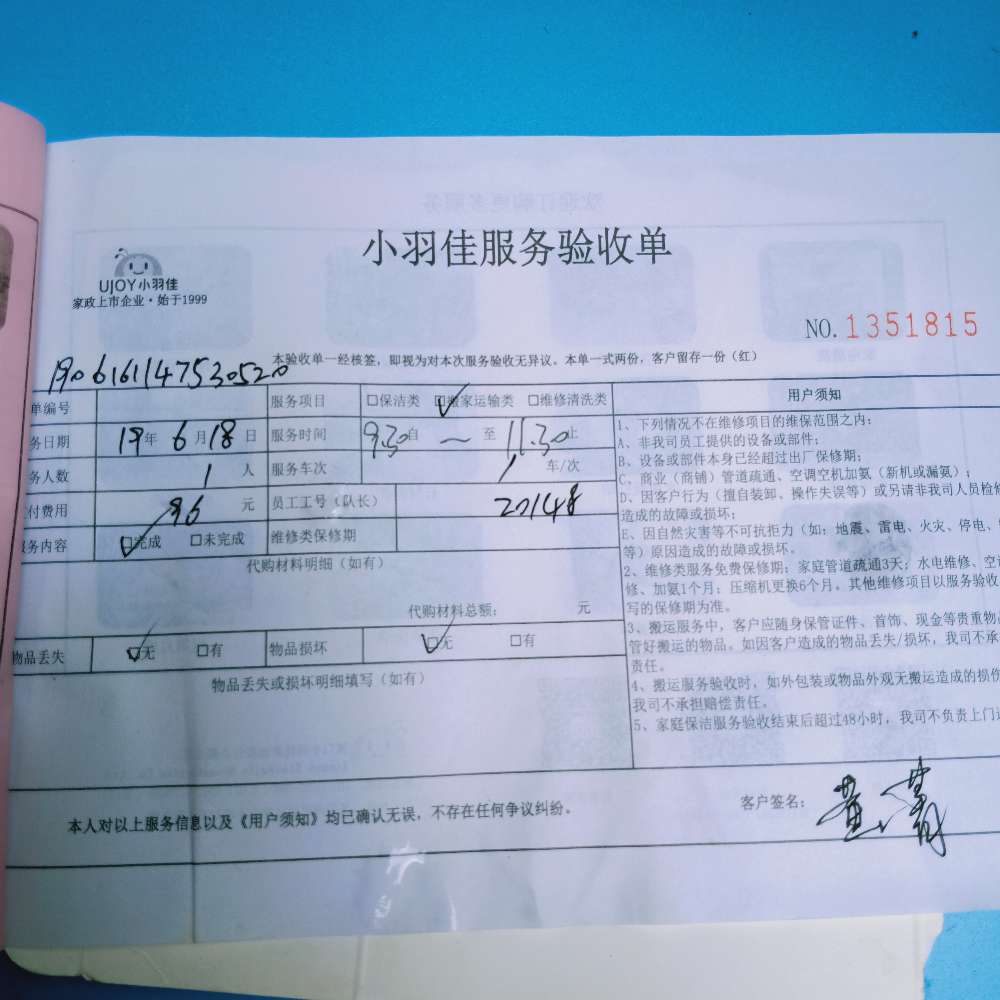 小羽佳服务验收单
UJOY小羽佳
家政上市企业·始于1999
NO.1351815
本验收单一经核签，即视为对本次服务验收无异议。本单一式两份，客户留存一份（红）
1906161147530520
单编号 服务项目 □保洁类 ☑搬家运输类 □维修清洗类
务日期 19年6月18日 服务时间 9.30自 ～ 至 11.30止
务人数 1 人 服务车次 1 车/次
付费用 96 元 员工工号（队长） 20148
服务内容 ☑完成 □未完成 维修类保修期
代购材料明细（如有）
代购材料总额： 元
物品丢失 ☑无 □有 物品损坏 ☑无 □有
物品丢失或损坏明细填写（如有）
用户须知
1、下列情况不在维修项目的维保范围之内：
A、非我司员工提供的设备或部件；
B、设备或部件本身已经超过出厂保修期；
C、商业（商铺）管道疏通、空调空机加氨（新机或漏氨）；
D、因客户行为（擅自装卸、操作失误等）或另请非我司人员检修
造成的故障或损坏；
E、因自然灾害等不可抗拒力（如：地震、雷电、火灾、停电、
等）原因造成的故障或损坏。
2、维修类服务免费保修期：家庭管道疏通3天；水电维修、空
修、加氨1个月；压缩机更换6个月。其他维修项目以服务验收
写的保修期为准。
3、搬运服务中，客户应随身保管证件、首饰、现金等贵重物
管好搬运的物品。如因客户造成的物品丢失/损坏，我司不承
责任。
4、搬运服务验收时，如外包装或物品外观无搬运造成的损伤
我司不承担赔偿责任。
5、家庭保洁服务验收结束后超过48小时，我司不负责上门
本人对以上服务信息以及《用户须知》均已确认无误，不存在任何争议纠纷。
客户签名：